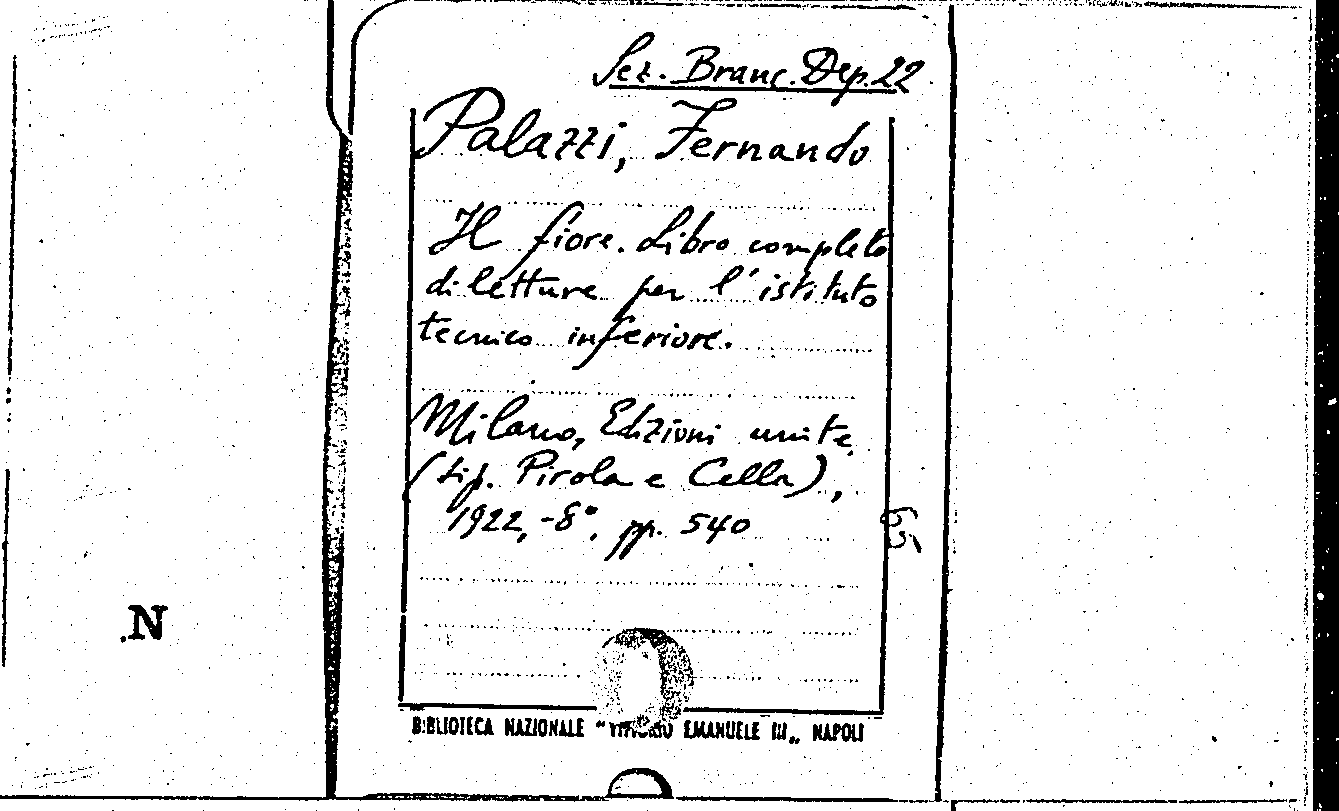 Sez. Branc. Dep. 22
Palazzi, Fernando
Il fiore. Libro completo
di letture per l'istituto
tecnico inferiore.
Milano, Edizioni unite
(tip. Pirola e Cella),
1922, -8°, pp. 540
65
N
BIBLIOTECA NAZIONALE "VITTORIO EMANUELE III„ NAPOLI